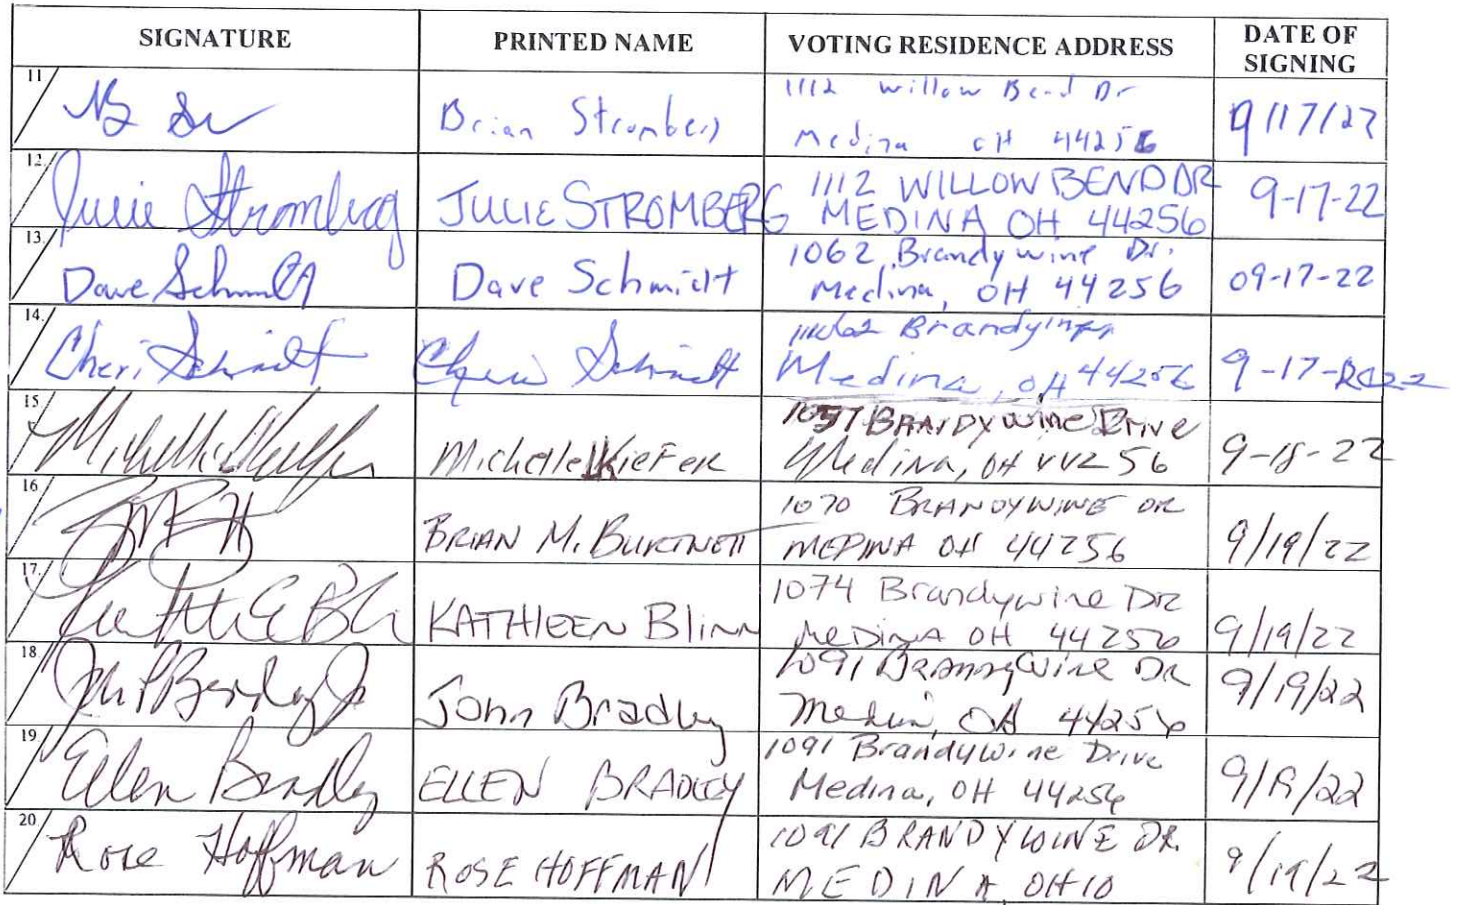 SIGNATURE PRINTED NAME VOTING RESIDENCE ADDRESS DATE OF SIGNING
11
Brian Stromberg
1112 Willow Bend Dr
Medina OH 44256
9/17/22
12.
Julie Stromberg
JULIE STROMBERG
1112 WILLOW BEND DR
MEDINA OH 44256
9-17-22
13.
Dave Schmidt
Dave Schmidt
1062 Brandywine Dr.
Medina, OH 44256
09-17-22
14.
Cheri Schmidt
Cheri Schmidt
Medina, OH 44256
15
Michelle Kiefer
Michelle Kiefer
1057 BRANDYWINE Drive
Medina, OH 44256
9-18-22
16
BRIAN M. BURTNETT
1070 BRANDYWINE DR
MEDINA OH 44256
9/19/22
17.
KATHLEEN Blinn
1074 Brandywine DR
MEDINA OH 44256
9/19/22
18
John Bradley
1091 Brandywine DR
Medina, OH 44256
9/19/22
19
Ellen Bradley
ELLEN BRADLEY
1091 Brandywine Drive
Medina, OH 44256
9/19/22
20
Rose Hoffman
ROSE HOFFMAN
1091 BRANDYWINE DR.
MEDINA, OHIO
9/19/22